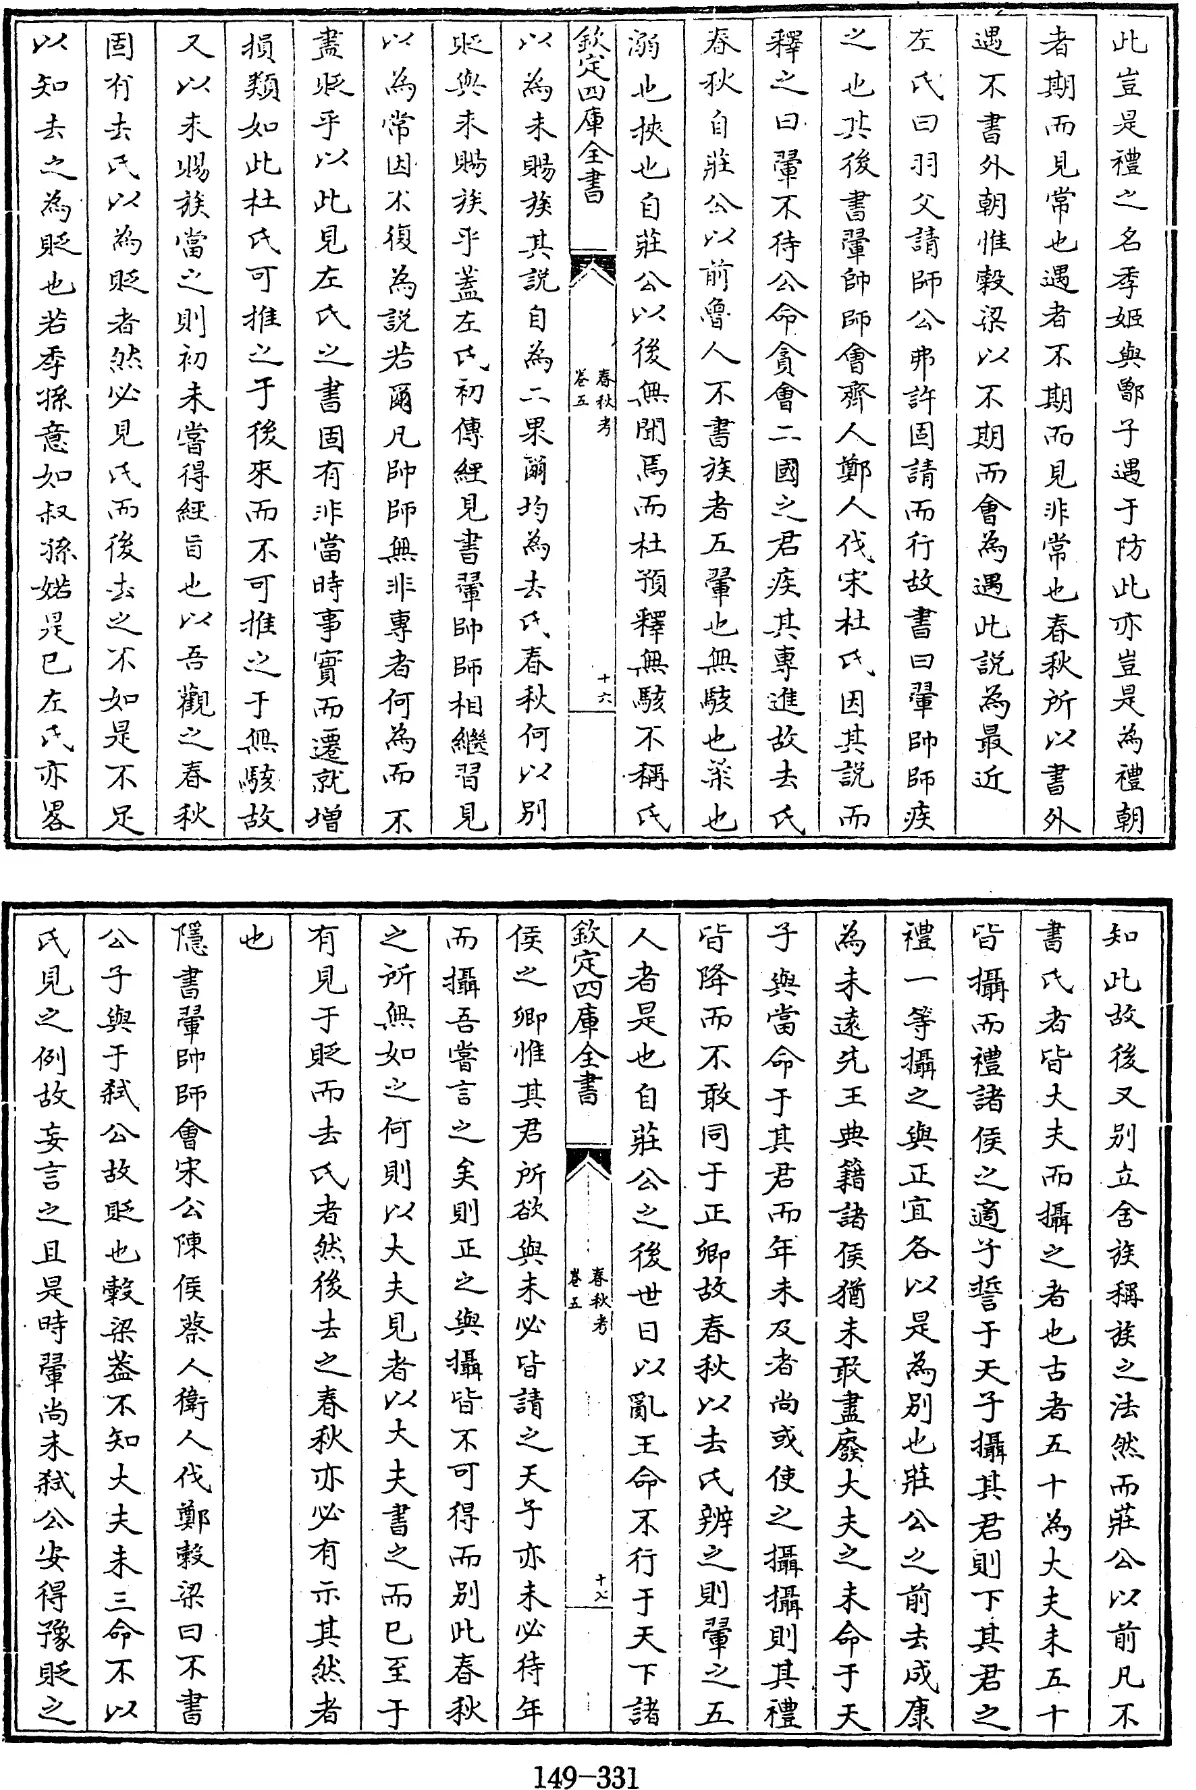 此豈是禮之名季姬與鄫子遇于防此亦豈是為禮朝
者期而見常也遇者不期而見非常也春秋所以書外
遇不書外朝惟穀梁以不期而會為遇此說為最近
左氏曰羽父請師公弗許固請而行故書曰翬帥師疾
之也其後書翬帥師會齊人鄭人伐宋杜氏因其說而
釋之曰翬不待公命貪會二國之君疾其專進故去氏
春秋自莊公以前魯人不書族者五翬也無駭也柔也
溺也挾也自莊公以後無聞焉而杜預釋無駭不稱氏
欽定四庫全書
春秋考
卷五
十六
以為未賜族其說自為二果爾均為去氏春秋何以別
貶與未賜族乎蓋左氏初傳經見書翬帥師相繼習見
以為常因不復為說若爾凡帥師無非專者何為而不
盡貶乎以此見左氏之書固有非當時事實而遷就增
損類如此杜氏可推之于後來而不可推之于無駭故
又以未賜族當之則初未嘗得經旨也以吾觀之春秋
固有去氏以為貶者然必見氏而後去之不如是不足
以知去之為貶也若季孫意如叔孫婼是已左氏亦畧
知此故後又別立舍族稱族之法然而莊公以前凡不
書氏者皆大夫而攝之者也古者五十為大夫未五十
皆攝而禮諸侯之適子誓于天子攝其君則下其君之
禮一等攝之與正宜各以是為別也莊公之前去成康
為未遠先王典籍諸侯猶未敢盡廢大夫之未命于天
子與當命于其君而年未及者尚或使之攝攝則其禮
皆降而不敢同于正卿故春秋以去氏辨之則翬之五
人者是也自莊公之後世日以亂王命不行于天下諸
欽定四庫全書
春秋考
卷五
十七
侯之卿惟其君所欲與未必皆請之天子亦未必待年
而攝吾嘗言之矣則正之與攝皆不可得而別此春秋
之所無如之何則以大夫見者以大夫書之而已至于
有見于貶而去氏者然後去之春秋亦必有示其然者
也
隱書翬帥師會宋公陳侯蔡人衛人伐鄭穀梁曰不書
公子與于弒公故貶也穀梁蓋不知大夫未三命不以
氏見之例故妄言之且是時翬尚未弒公安得豫貶之
149-331